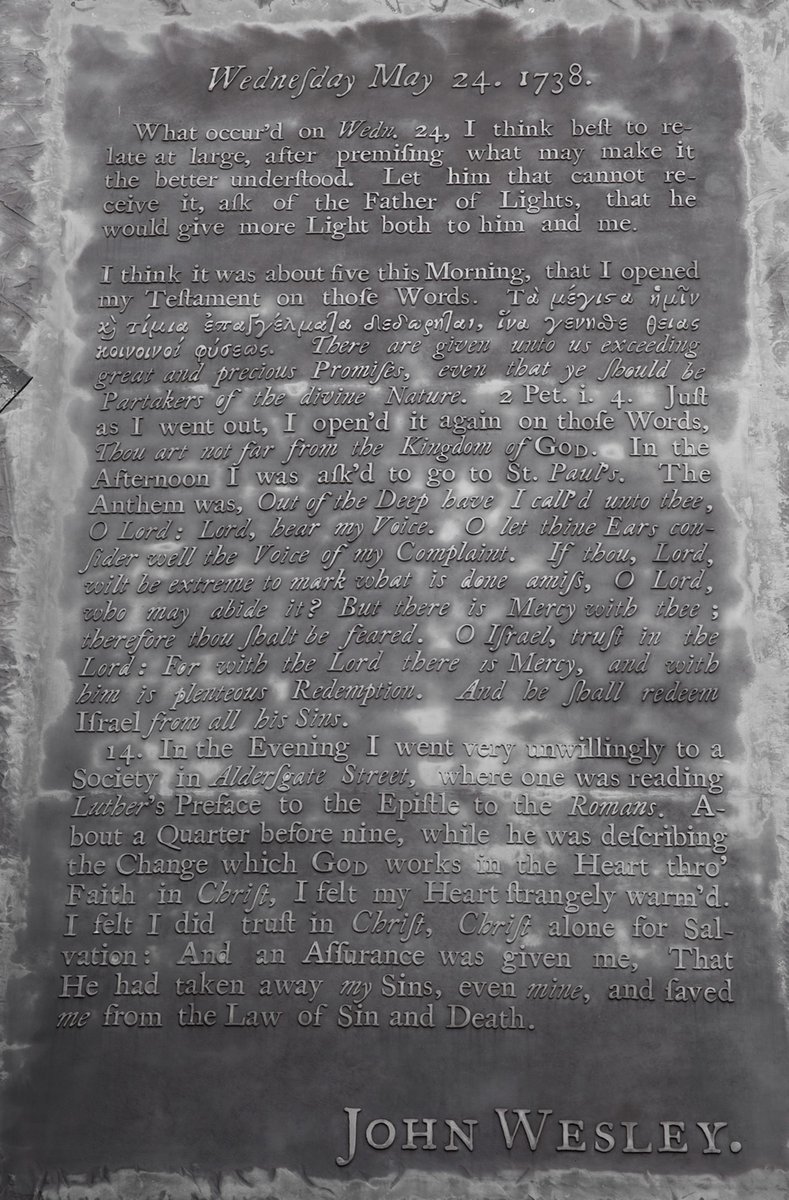 Wedneſday May 24. 1738.
What occur'd on Wedn. 24, I think beſt to re-
late at large, after premiſing what may make it
the better underſtood. Let him that cannot re-
ceive it, aſk of the Father of Lights, that he
would give more Light both to him and me.
I think it was about five this Morning, that I opened
my Teſtament on thoſe Words. Τὰ μέγιϛα ἡμῖν
ϗ̀ τίμια ἐπαγγέλματα δεδώρηται, ἵνα γένηθε θείας
κοινωνοί φύσεως. There are given unto us exceeding
great and precious Promiſes, even that ye ſhould be
Partakers of the divine Nature. 2 Pet. i. 4. Juſt
as I went out, I open'd it again on thoſe Words,
Thou art not far from the Kingdom of GOD. In the
Afternoon I was aſk'd to go to St. Paul's. The
Anthem was, Out of the Deep have I call'd unto thee,
O Lord: Lord, hear my Voice. O let thine Ears con-
ſider well the Voice of my Complaint. If thou, Lord,
wilt be extreme to mark what is done amiſs, O Lord,
who may abide it? But there is Mercy with thee;
therefore thou ſhalt be feared. O Iſrael, truſt in the
Lord: For with the Lord there is Mercy, and with
him is plenteous Redemption. And he ſhall redeem
Iſrael from all his Sins.
14. In the Evening I went very unwillingly to a
Society in Alderſgate Street, where one was reading
Luther's Preface to the Epiſtle to the Romans. A-
bout a Quarter before nine, while he was deſcribing
the Change which GOD works in the Heart thro'
Faith in Chriſt, I felt my Heart ſtrangely warm'd.
I felt I did truſt in Chriſt, Chriſt alone for Sal-
vation: And an Aſſurance was given me, That
He had taken away my Sins, even mine, and ſaved
me from the Law of Sin and Death.
JOHN WESLEY.